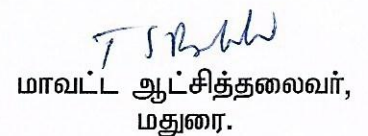 மாவட்ட ஆட்சித்தலைவர்,
மதுரை.